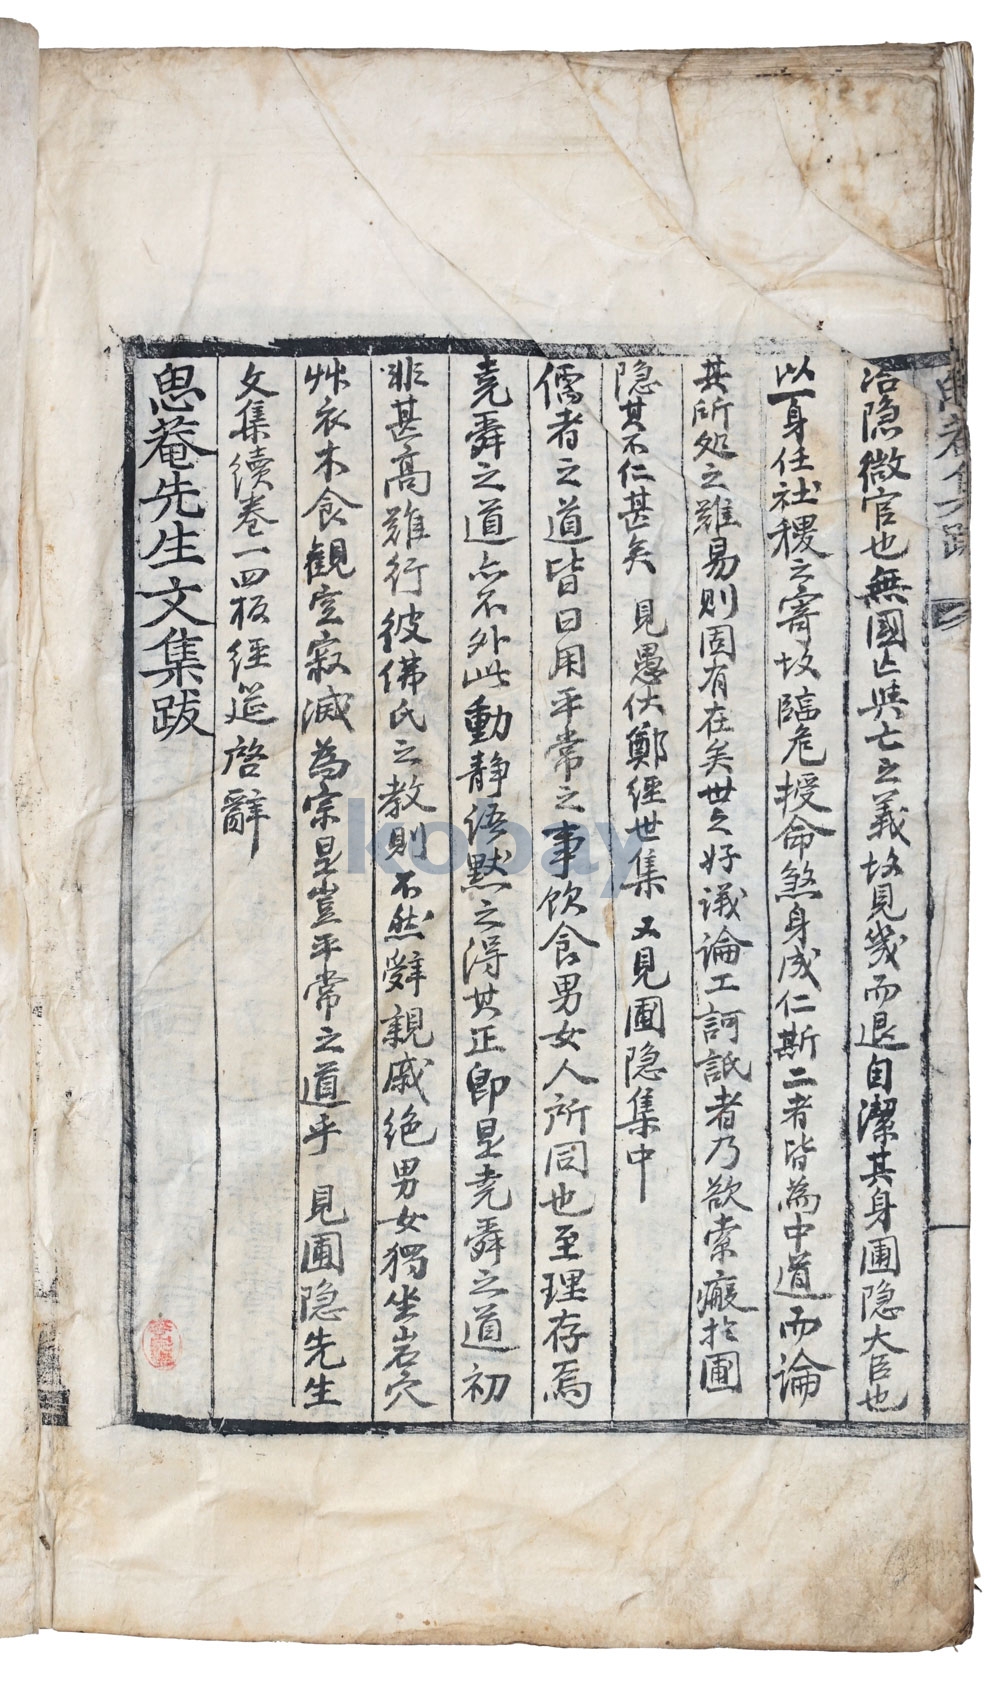 冶隐微官也無國亡與亡之義故見幾而退自潔其身圃隐大臣也
以一身任社稷之寄故臨危授命煞身成仁斯二者皆為中道而論
其所処之難易則固有在矣世之好議論工訶詆者乃欲索瘢於圃
隐其不仁甚矣 見愚伏鄭經世集 又見圃隐集中
儒者之道皆日用平常之事飲食男女人所同也至理存焉
堯舜之道亦不外此動静語默之得其正卽是堯舜之道初
非甚高難行彼佛氏之教則不然辤親戚絶男女獨坐岩穴
艸衣木食觀空寂滅為宗是豈平常之道乎 見圃隐先生
文集續卷一四板經筵啓辭
思菴先生文集跋
kobay